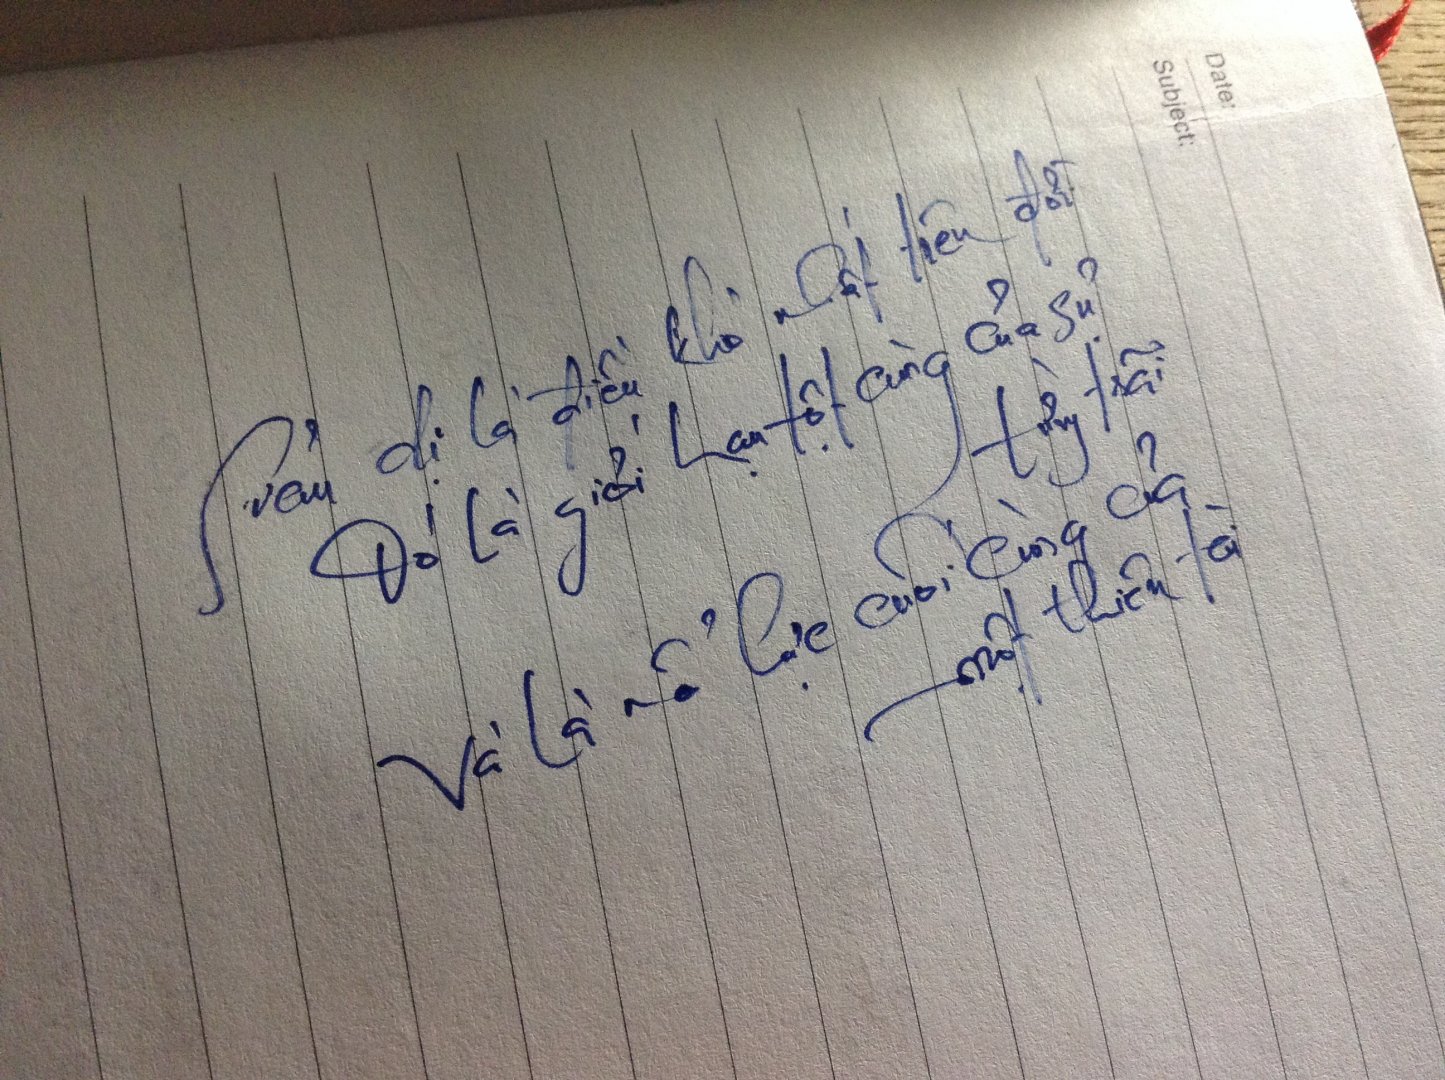 Date:
Subject:
Giản dị là điều khó nhất trên đời
Đó là giới hạn tột cùng của sự
từng trãi
Và là nổ lực cuối cùng của
một thiên tài